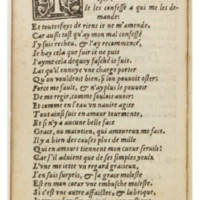 Ie les confesse a qui me les demande:
Et toutesfoys de riens ie ne m'amende,
Car aussi tost qu'ay mon mal confessé
I'y suis recheu, & l'ay recommencé,
Ie hay cela que suir ie ne puis
I'ayme cela dequoy fasché ie suis.
Las qu'il ennuye vne charge porter
Qu'on vouldroit bien s'il son pouuoit oster:
Force me fault, & n'ay plus le pouuoir
De me regir, comme soulois auoir:
Et comme en l'eau vn nauire agite
Tout ainsi suis en amour tourmente,
Et si n'y a aucune belle face
Grace, ou maintien, qui amoureux me face.
Il y a bien des causes plus de mille
Qui en amours tiennent mon cueur seruil:
Car s'il aduient que de ses simples yeulx
L'une me iette vn regard gracieux,
I'en suis surpris, & sa grace modeste
Est en mon cœur vne embusche moleste.
Et s'est vne autre affaictee, & lubrique,